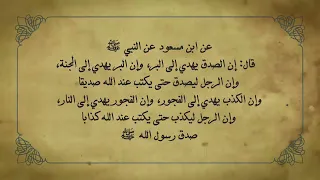 عن ابن مسعود عن النبي ﷺ
قال: إن الصدق يهدي إلى البر، وإن البر يهدي إلى الجنة،
وإن الرجل ليصدق حتى يكتب عند الله صديقا
وإن الكذب يهدي إلى الفجور، وإن الفجور يهدي إلى النار،
وإن الرجل ليكذب حتى يكتب عند الله كذابا
صدق رسول الله ﷺ